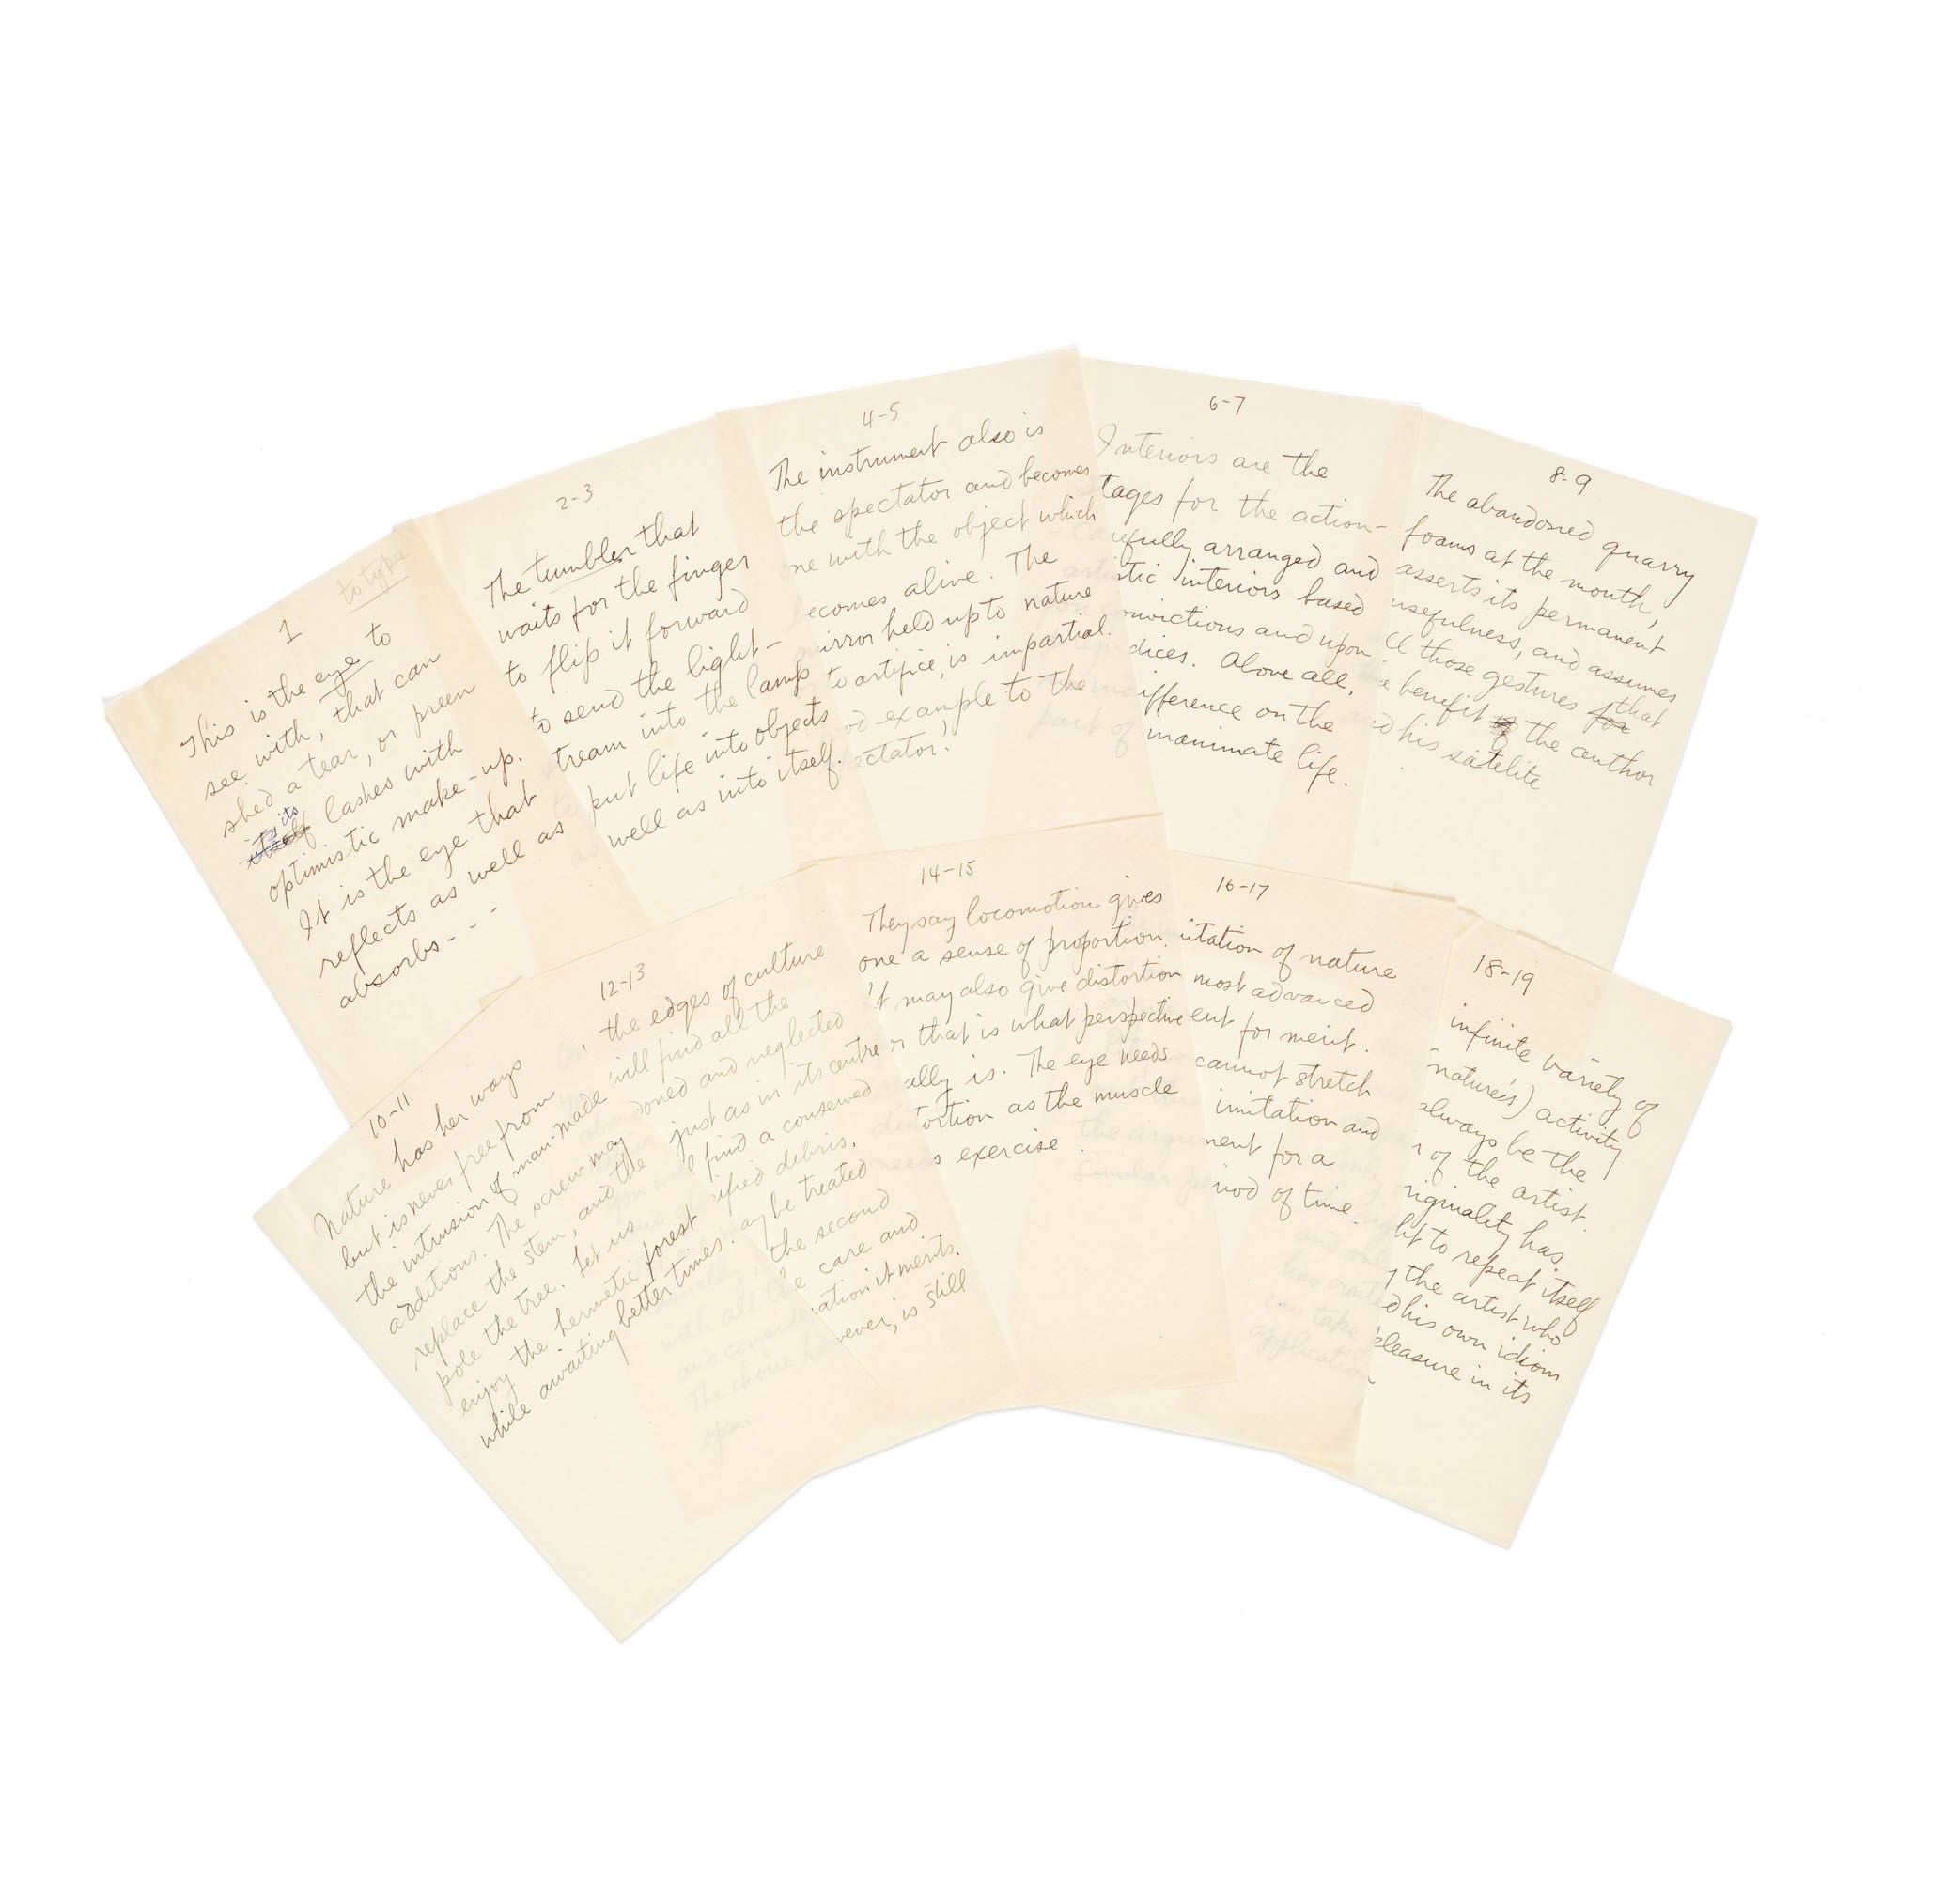 1
to type
This is the eye to
see with, that can
shed a tear, or preen
its
itself lashes with
optimistic make-up.
It is the eye that
reflects as well as
absorbs- - -
2-3
The tumbler that
waits for the finger
to flip it forward
to send the light-
stream into the lamp
put life into objects
well as into itself.
4-5
The instrument also is
the spectator and becomes
one with the object which
becomes alive. The
mirror held up to nature
to artifice, is impartial.
example to the
ectator!
6-7
Interiors are the
tages for the action-
carefully arranged and
artistic interiors based
convictions and upon
dices. Above all,
ifference on the
part of inanimate life.
8-9
The abandoned quarry
foams at the mouth,
asserts its permanent
usefulness, and assumes
ll those gestures for that
e benefit of the author
d his satelite
10-11
Nature has her ways
but is never free from
the intrusion of man-made
additions. The screw may
replace the stem, and the
pole the tree. Let us
enjoy the hermetic forest
while awaiting better times.
12-13
the edges of culture
will find all the
abandoned and neglected
just as in its centre
find a conserved
ified debris,
ay be treated
the second
with all the care and
and consideration it merits.
The choice however, is still
open.
14-15
They say locomotion gives
one a sense of proportion.
It may also give distortion
r that is what perspective
ally is. The eye needs
distortion as the muscle
needs exercise.
16-17
itation of nature
most advanced
ent for merit.
cannot stretch
imitation and
the argument for a
similar period of time.
18-19
infinite variety of
(nature's) activity
always be the
of the artist.
riginality has
ht to repeat itself
and only the artist who
has created his own idiom
can take pleasure in its
application